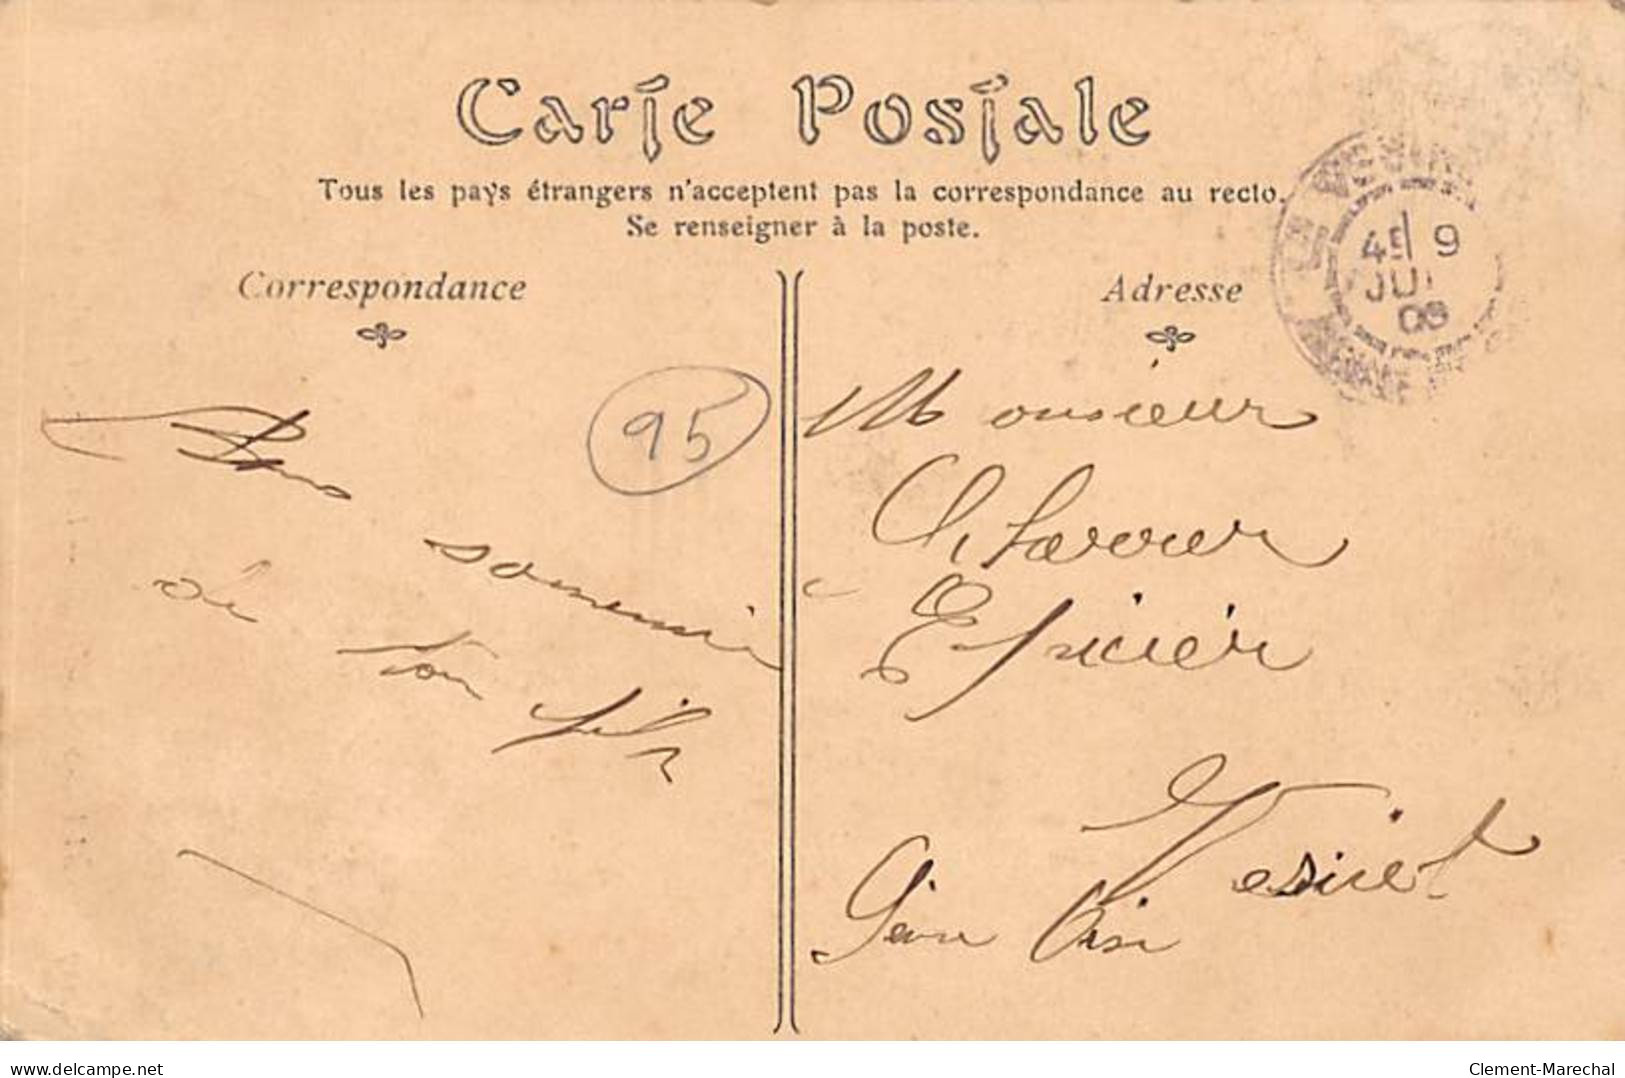 Carte Postale
Tous les pays étrangers n'acceptent pas la correspondance au recto.
Se renseigner à la poste.
Correspondance
Adresse
LE VESINET
45 9
JUI
08
95
Bons souvenir
de ton fils
Monsieur
Ch
Epicier
Vesinet
Seine Oise
www.delcampe.net
Clement-Marechal